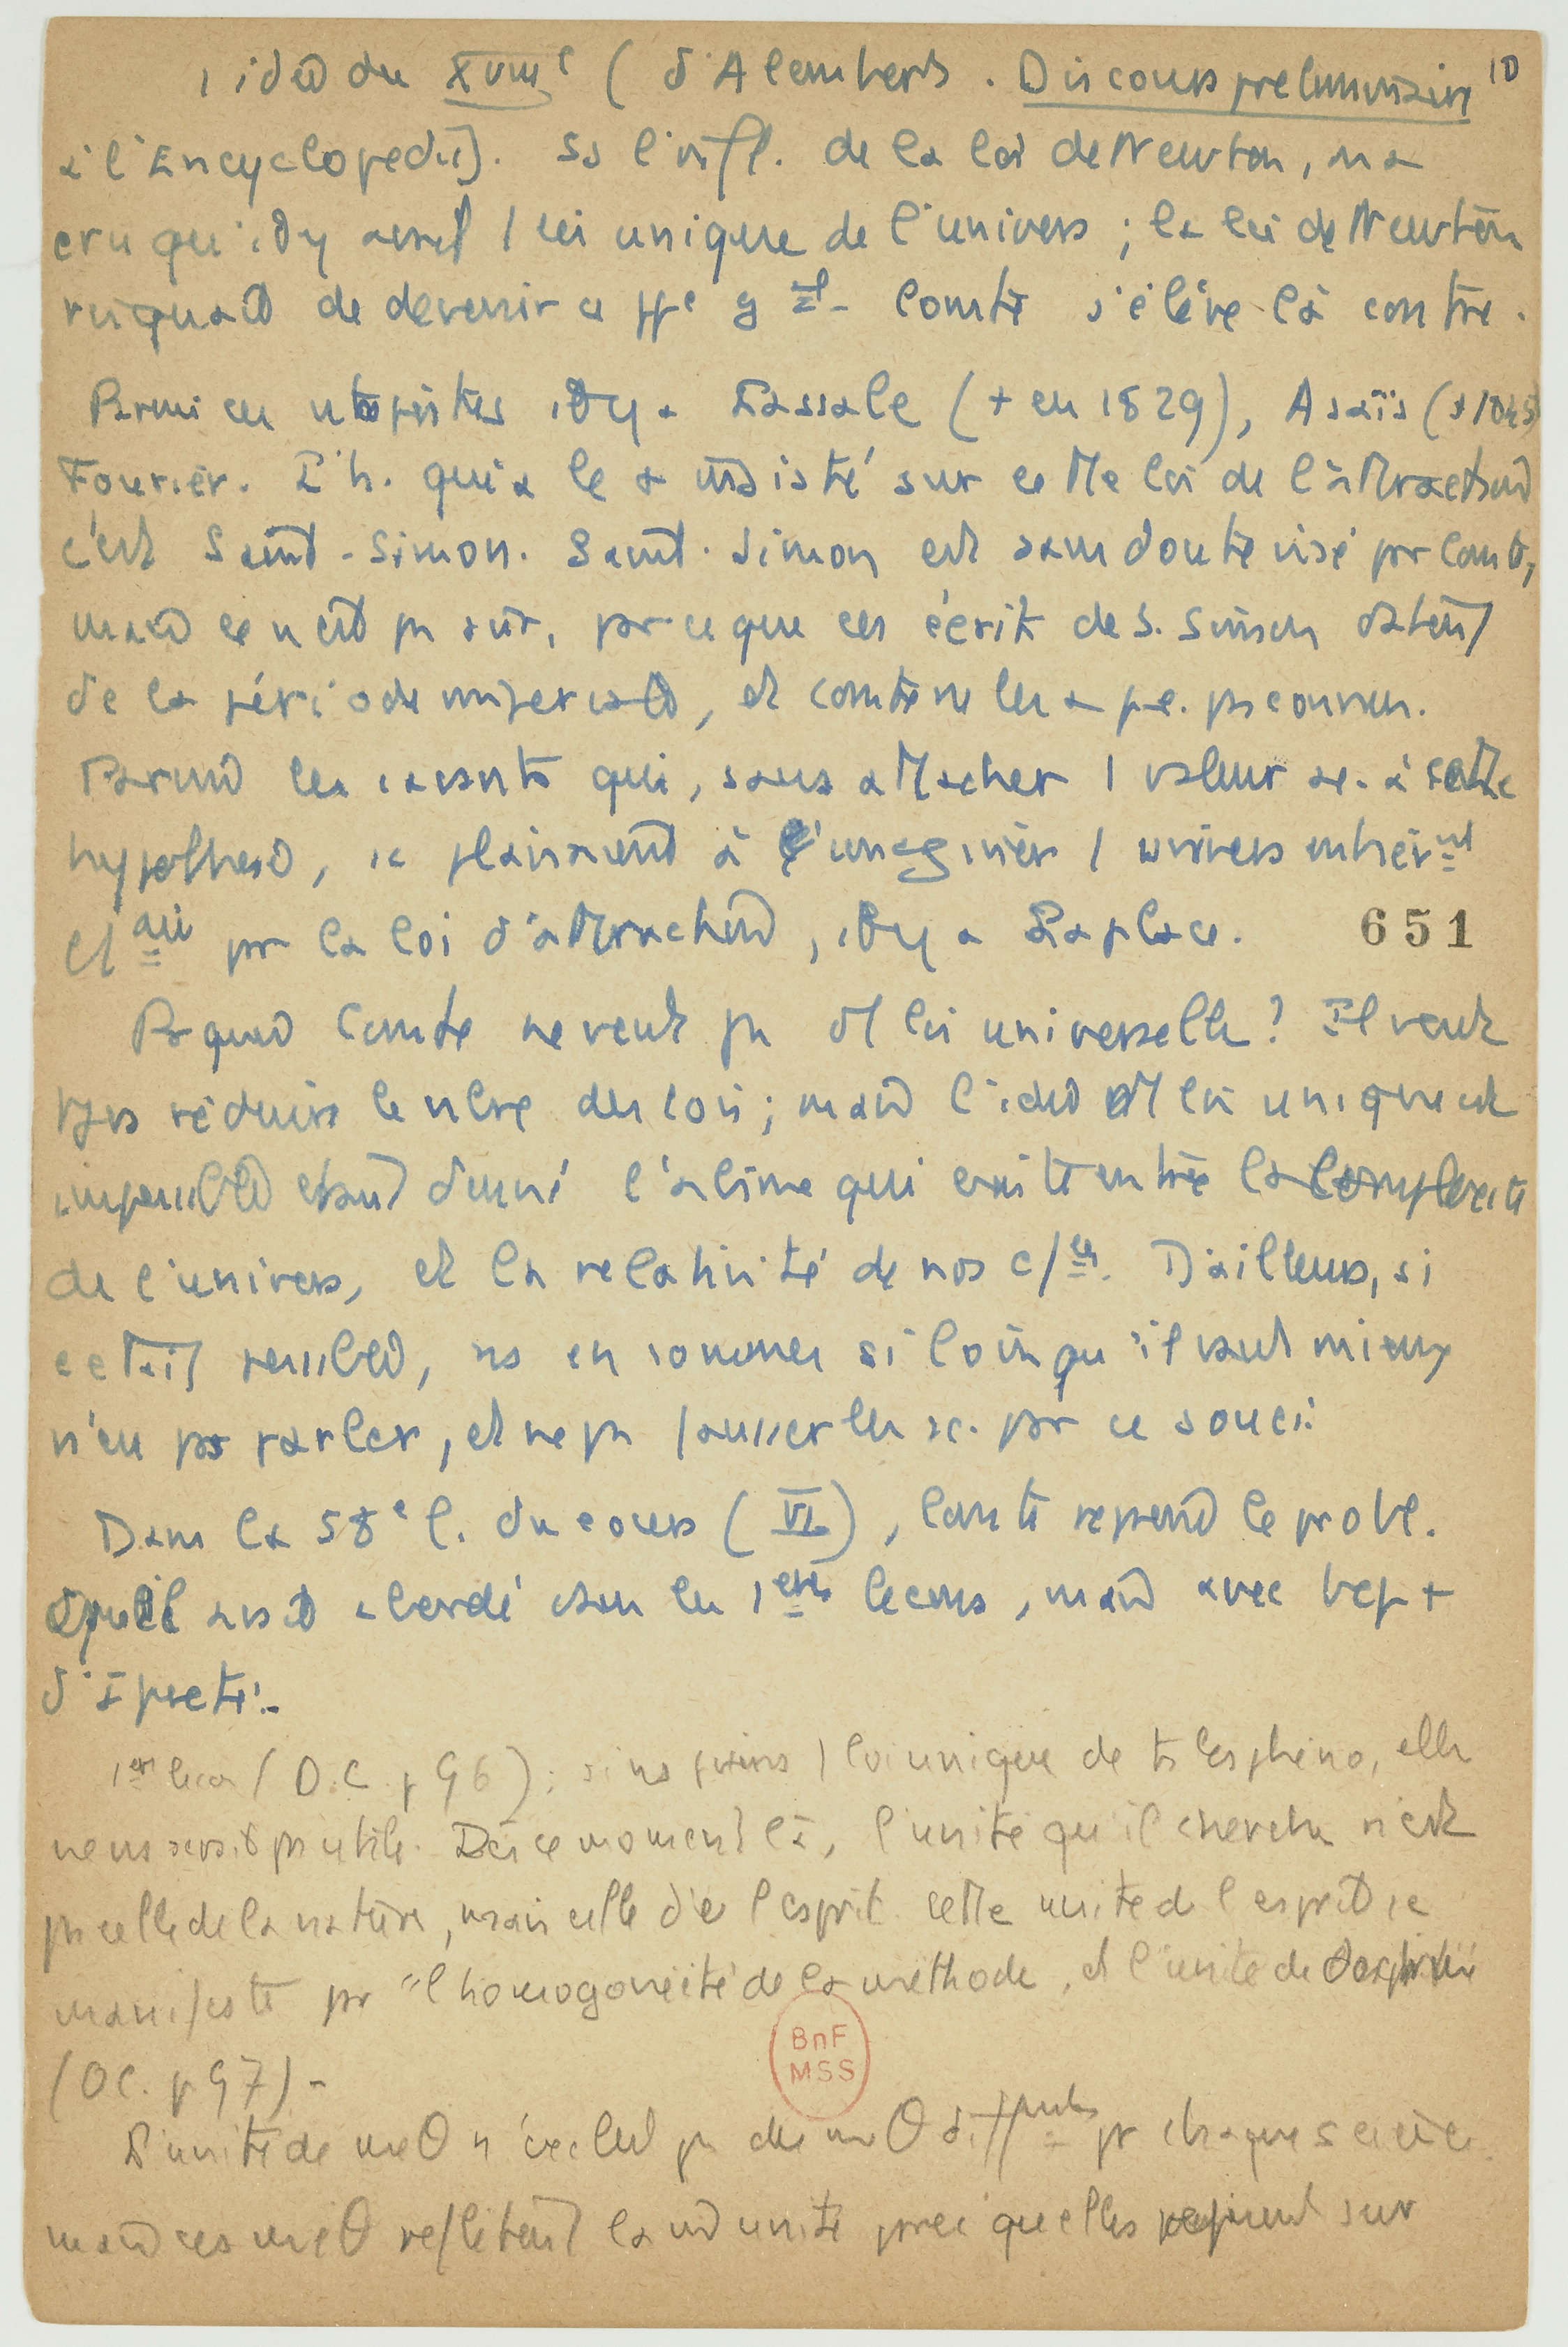 1 idée du XVIIIe (d'Alembert. Discours préliminaire 10
à l'Encyclopédie). Ss l'infl. de la loi de Newton, on a
cru qu'il y avait 1 loi unique de l'univers ; la loi de Newton
risquait de devenir ce ppe gal. Comte s'élève là contre.
Parmi ces utopistes il y a Lassale (+ en 1829), Asaïs (+ 1845)
Fourier. L'h. qui a le + insisté sur cette loi de l'attraction
c'est Saint-Simon. Saint-Simon est sans doute visé pr Comte,
mais ce n'est ps sûr, parce que les écrits de S. Simon datent
de la période impériale, et Comte ne les a p.ê. ps connus.
Parmi les savants qui, sans attacher 1 valeur sc. à cette
hypothèse, se plaisaient à imaginer 1 univers entièrmt
pr la loi d'attraction, il y a Laplace. 651
Pquoi Comte ne veut ps d'1 loi universelle? Il veut
tjrs réduire le nbre des lois ; mais l'idée d'1 loi unique est
impossible étant donné l'abîme qui existe entre la complexité
de l'univers, et la relativité de nos c/ces. D'ailleurs, si
c'était possible, ns en sommes si loin qu'il vaut mieux
n'en ps parler, et ne ps fausser les sc. par ce souci.
Dans la 58e l. du cours (VI), Comte reprend le probl.
qu'il avait abordé dans les 1ères leçons, mais avec bcp +
d'âpreté.-
1ère leçon (O.C. p 96) : si ns avions 1 loi unique de ts les phéno, elle
ne ns serait ps utile. Dès ce moment là, l'unité qu'il cherche n'est
ps celle de la nature, mais celle de l'esprit. Cette unité de l'esprit se
manifeste pr "l'homogénéité de la méthode, et l'unité de doctrine
(OC. p 97) -
L'unité de méθ n'exclut ps des méθ difftes pr chaque science
mais ces méθ reflètent la m̂ unité parce qu'elles reposent sur
BnF
MSS